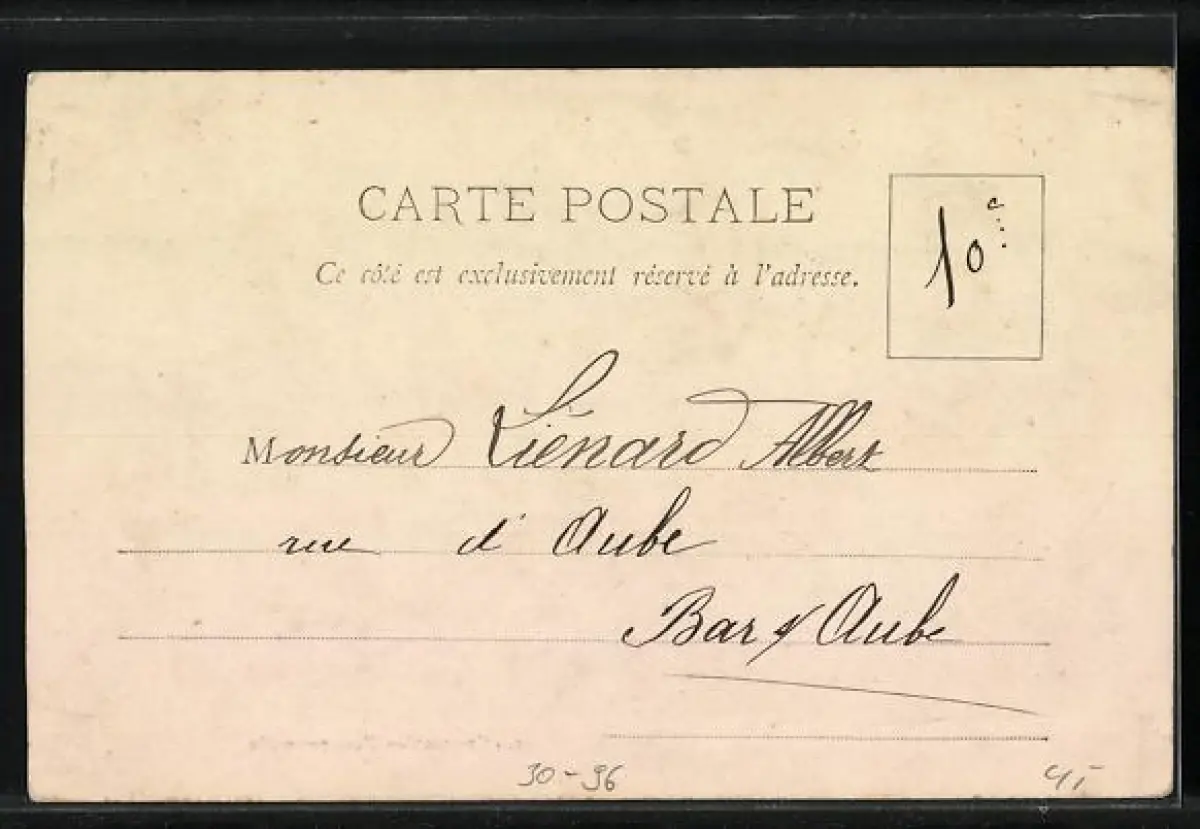 CARTE POSTALE
10 c
Ce côté est exclusivement réservé à l'adresse.
Monsieur Liénard Albert
rue d'Aube
Bar s/ Aube
30-96
45